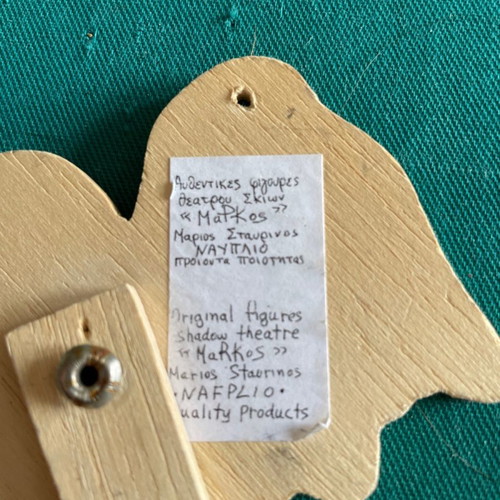 Αυθεντικες φιγουρες
θεατρου Σκιων
« MaRKos »
Μαριος Σταυρινος
ΝΑΥΠΛΙΟ
προιοντα ποιοτητας
Original figures
shadow theatre
« MaRKoS »
Marios Stavrinos
• NAFPLIO •
Quality Products